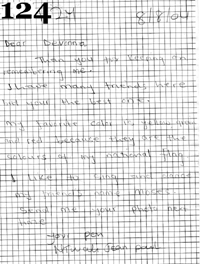 124
8/8/04
Dear Devonna
Thank you for keeping on
remembering me.
I have many friends here
but your the best one.
My favorite color is yellow, blue
and red because they are the
colours of my national flag
I like to sing and dance
my friend's name Moses.
Send me your photo next
your pen
Jean paul